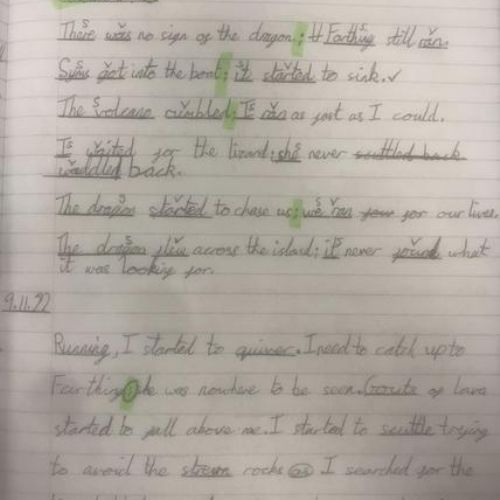 There was no sign of the dragon; Farthing still ran.
Syms got into the boat; it started to sink.
The volcano rumbled; I ran as fast as I could.
I waited for the lizard; she never scuttled back
waddled back.
The dragon started to chase us; we ran for our lives.
The dragon flew across the island; it never found what
it was looking for.
9.11.22
Running, I started to quiver. I need to catch up to
Farthing he was nowhere to be seen. Gouts of lava
started to fall above me. I started to scuttle trying
to avoid the strewn rocks as I searched for the